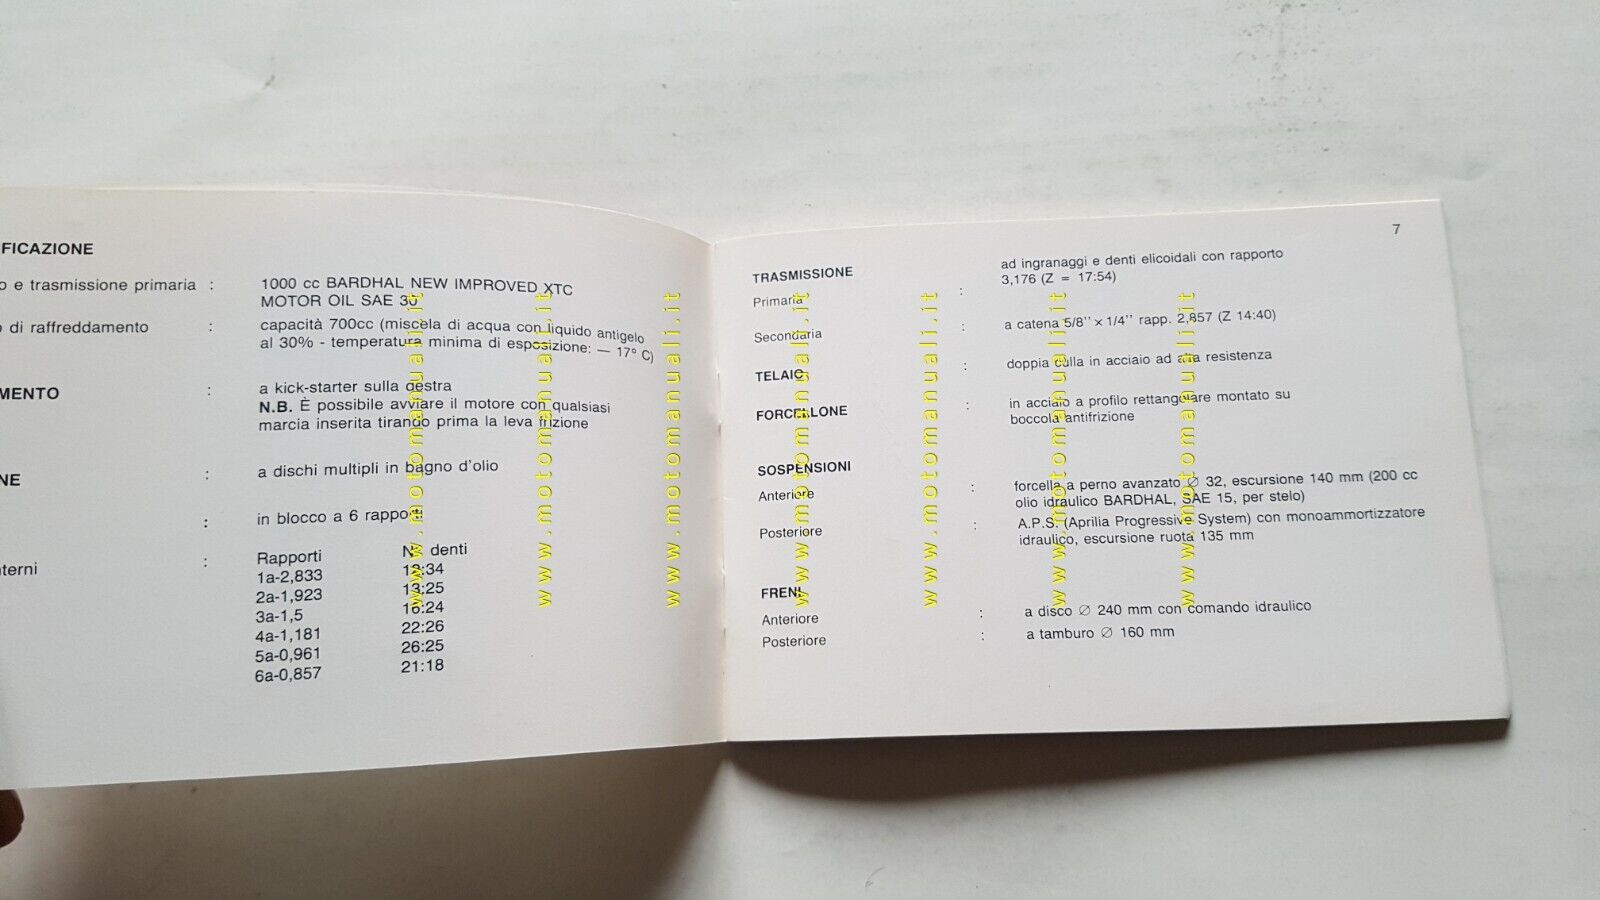 FICAZIONE
o e trasmissione primaria : 1000 cc BARDHAL NEW IMPROVED XTC
MOTOR OIL SAE 30
o di raffreddamento : capacità 700cc (miscela di acqua con liquido antigelo
al 30% - temperatura minima di esposizione: — 17° C)
MENTO : a kick-starter sulla destra
N.B. È possibile avviare il motore con qualsiasi
marcia inserita tirando prima la leva frizione
NE : a dischi multipli in bagno d'olio
: in blocco a 6 rapporti
nterni : Rapporti N° denti
1a-2,833 12:34
2a-1,923 13:25
3a-1,5 16:24
4a-1,181 22:26
5a-0,961 26:25
6a-0,857 21:18
7
TRASMISSIONE
Primaria : ad ingranaggi e denti elicoidali con rapporto
3,176 (Z = 17:54)
Secondaria : a catena 5/8'' × 1/4'' rapp. 2,857 (Z 14:40)
TELAIO : doppia culla in acciaio ad alta resistenza
FORCELLONE : in acciaio a profilo rettangolare montato su
boccola antifrizione
SOSPENSIONI
Anteriore : forcella a perno avanzato ∅ 32, escursione 140 mm (200 cc
olio idraulico BARDHAL, SAE 15, per stelo)
Posteriore : A.P.S. (Aprilia Progressive System) con monoammortizzatore
idraulico, escursione ruota 135 mm
FRENI
Anteriore : a disco ∅ 240 mm con comando idraulico
Posteriore : a tamburo ∅ 160 mm
www.motomanuali.it
www.motomanuali.it
www.motomanuali.it
www.motomanuali.it
www.motomanuali.it
www.motomanuali.it
www.motomanuali.it